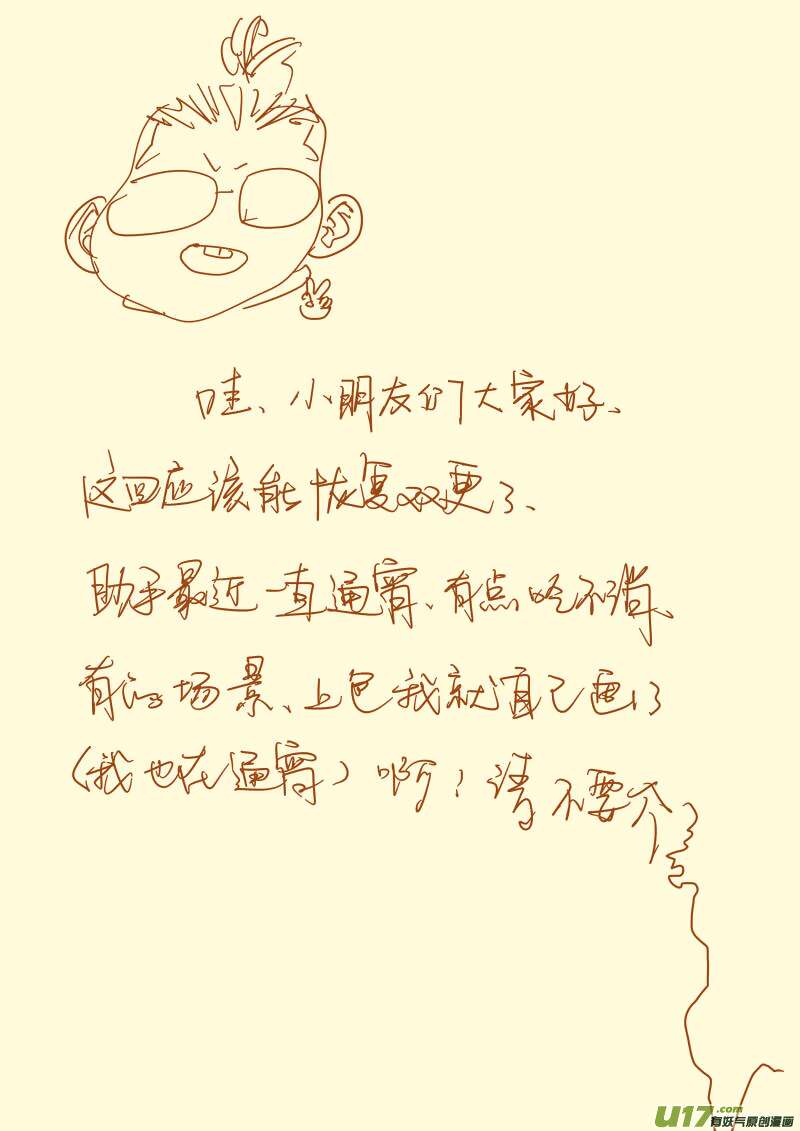 哇、小朋友们大家好、
这回应该能恢复双更了、
助手最近一直通宵、有点吃不消、
有的场景、上色我就自己画了
(我也在通宵)啊！请不要介
U17.com
有妖气原创漫画